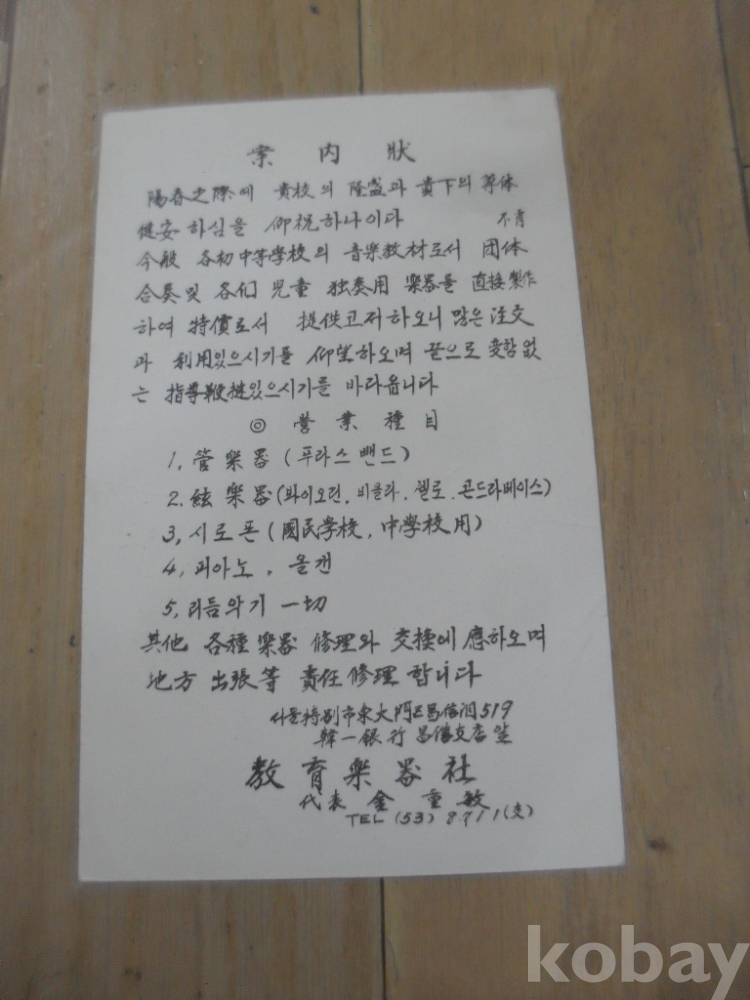 案 內 狀
陽春之際에 貴校의 隆盛과 貴下의 尊体
健安 하심을 仰祝하나이다 不肖
今般 各初中等學校의 音樂敎材로서 団体
合奏및 各個 児童 独奏用 樂器를 直接製作
하여 特價로서 提供코저하오니 많은 注文
과 利用있으시기를 仰望하오며 끝으로 変함없
는 指導鞭撻있으시기를 바라옵니다
◎ 營業種目
1, 管樂器 (푸라스 밴드)
2. 絃樂器 (봐이오린, 비올라, 첼로, 곤드라베이스)
3, 시로폰 (國民学校, 中學校用)
4, 피아노, 올갠
5, 리듬악기 一切
其他 各種樂器 修理와 交換에 應하오며
地方 出張等 責任修理 합니다
서울特別市東大門区昌信洞519
韓一銀行 昌信支店 앞
敎育樂器社
代表 金重敏
TEL (53) 8711(交)
kobay